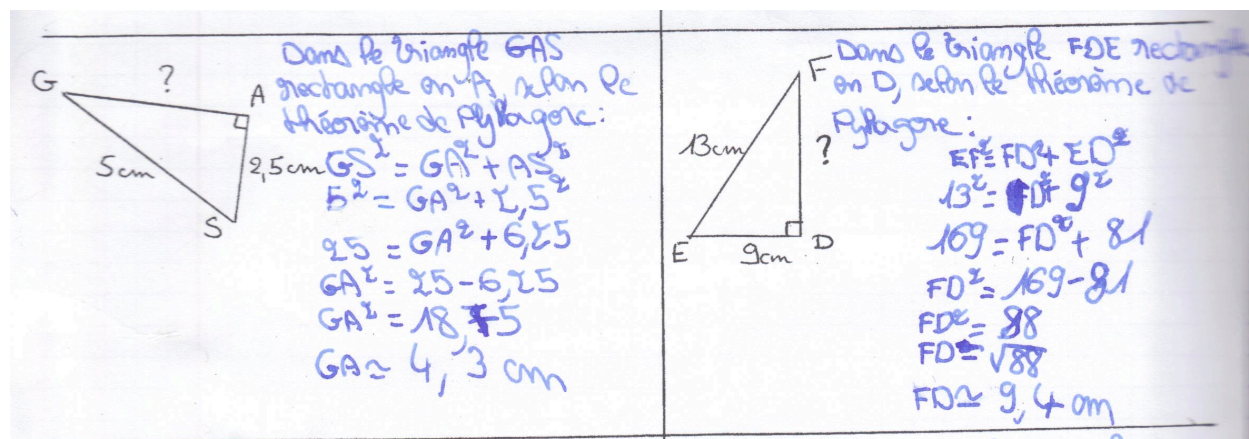 G
?
A
5cm
2,5cm
S
Dans le triangle GAS
rectangle en A, selon le
théorème de Pythagore:
GS² = GA² + AS²
5² = GA² + 2,5²
25 = GA² + 6,25
GA² = 25 - 6,25
GA² = 18,75
GA ≃ 4,3 cm
F
13cm
?
E
9cm
D
Dans le triangle FDE rectangle
en D, selon le théorème de
Pytagore:
EF² = FD² + ED²
13² = FD² + 9²
169 = FD² + 81
FD² = 169 - 81
FD² = 88
FD = √88
FD ≃ 9,4 cm